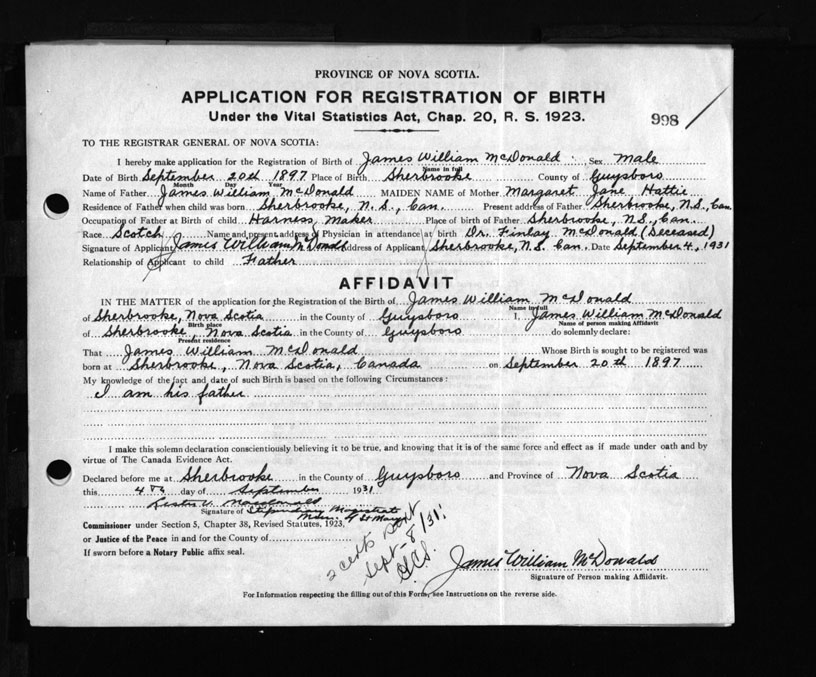 PROVINCE OF NOVA SCOTIA.
APPLICATION FOR REGISTRATION OF BIRTH
Under the Vital Statistics Act, Chap. 20, R. S. 1923.
998
TO THE REGISTRAR GENERAL OF NOVA SCOTIA:
I hereby make application for the Registration of Birth of James William McDonald Sex Male
Name in full
Date of Birth September 20th 1897 Place of Birth Sherbrooke County of Guysboro
Month Day Year
Name of Father James William McDonald MAIDEN NAME of Mother Margaret Jane Hattie
Residence of Father when child was born Sherbrooke, N. S., Can. Present address of Father Sherbrooke, N.S., Can.
Occupation of Father at Birth of child Harness Maker Place of birth of Father Sherbrooke, N.S., Can.
Race Scotch Name and present address of Physician in attendance at birth Dr. Finlay McDonald (Deceased)
Signature of Applicant James William McDonald Address of Applicant Sherbrooke, N.S. Can. Date September 4, 1931
Relationship of Applicant to child Father
AFFIDAVIT
IN THE MATTER of the application for the Registration of the Birth of James William McDonald
Name in full
of Sherbrooke, Nova Scotia in the County of Guysboro I, James William McDonald
Birth place Name of person making Affidavit
of Sherbrooke, Nova Scotia in the County of Guysboro do solemnly declare:
Present residence
That James William McDonald Whose Birth is sought to be registered was
born at Sherbrooke, Nova Scotia, Canada on September 20th 1897
My knowledge of the fact and date of such Birth is based on the following Circumstances:
I am his father
I make this solemn declaration conscientiously believing it to be true, and knowing that it is of the same force and effect as if made under oath and by
virtue of The Canada Evidence Act.
Declared before me at Sherbrooke in the County of Guysboro and Province of Nova Scotia
this 4th day of September 1931
Macdonald
Signature of Stipendiary Magistrate
Commissioner under Section 5, Chapter 38, Revised Statutes, 1923,
or Justice of the Peace in and for the County of
If sworn before a Notary Public affix seal.
2 certs sent
Sept-8/31.
James William McDonald
Signature of Person making Affidavit.
For Information respecting the filling out of this Form, see Instructions on the reverse side.